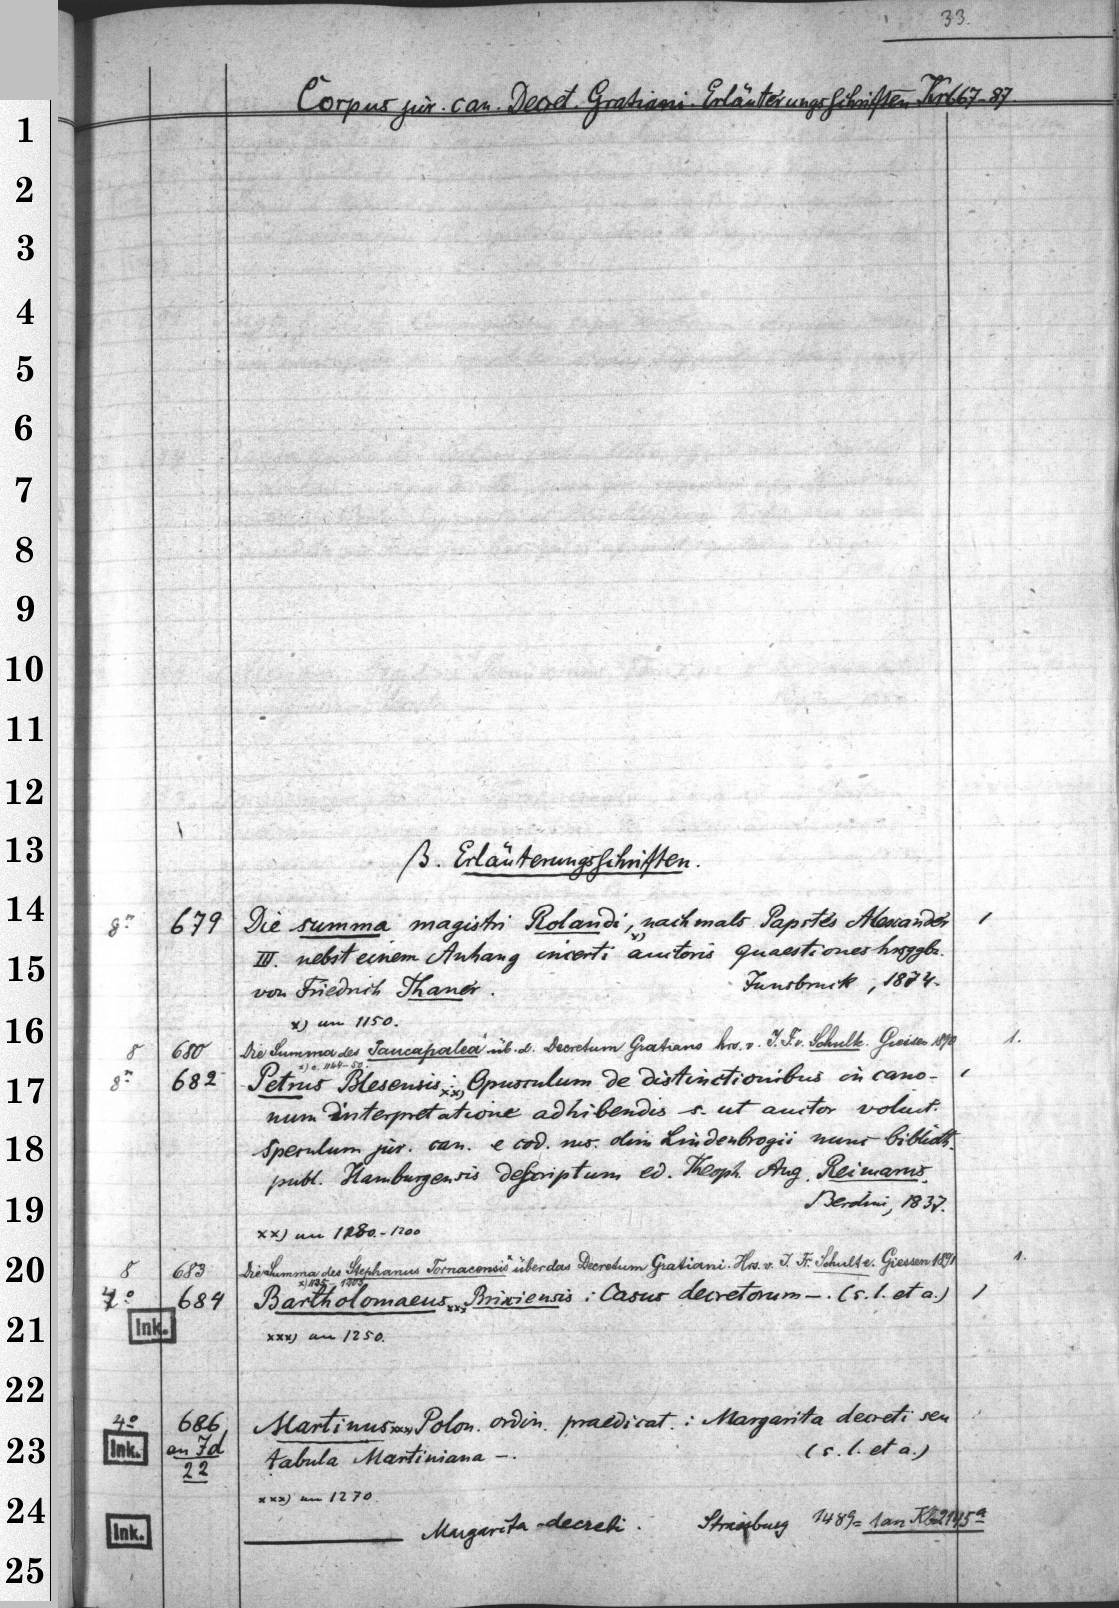 33.
Corpus jur. can. Decret. Gratiani. Erläuterungsschriften Kr 667-87.
1
2
3
4
5
6
7
8
9
10
11
12
13
β. Erläuterungsschriften.
14
8° 679 Die summa magistri Rolandi, nachmals Papstes Alexander
15
III. nebst einem Anhang incerti auctoris quaestiones hrsggb.
von Friedrich Thaner. Innsbruck, 1874.
16
x) um 1150.
8 680 Die Summa des Paucapalea üb. d. Decretum Gratians hrs. v. J. F. v. Schulte. Giessen 1890 1.
17
8° 682 Petrus Blesensis xx): Opusculum de distinctionibus in cano-
num interpretatione adhibendis s. ut auctor voluit.
18
speculum jur. can. e cod. ms. olim Lindenbrogii nunc biblioth.
publ. Hamburgensis descriptum ed. Theoph. Aug. Reimarus.
19
Berolini, 1837.
xx) um 1180.-1200
20
8 683 Die Summa des Stephanus Tornacensis x über das Decretum Gratiani. Hrs. v. J. Fr. Schulte. Giessen 1891 1.
x) 1135-1203
4° 684 Bartholomaeus xxx Brixiensis: Casus decretorum —. (s. l. et a.)
Ink.
21
xxx) um 1250.
22
4° 686 Martinus xxx) Polon. ordin. praedicat.: Margarita decreti seu
23
Ink. an 7d tabula Martiniana —. (s. l. et a.)
22
xxx) um 1270.
24
Ink. Margarita decreti. Strassburg 1489 = 1 an Kb2945a
25